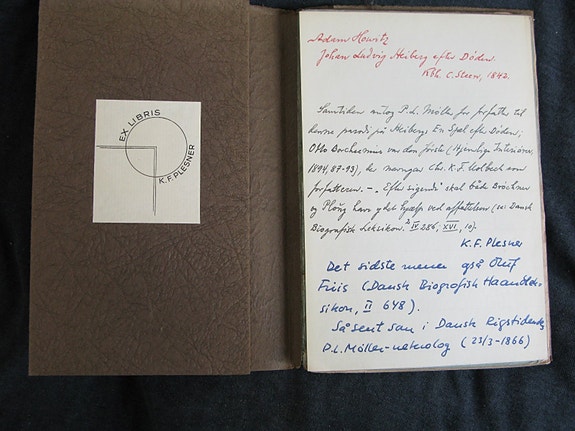 EX LIBRIS
K.F. PLESNER
Adam Howitz
Johan Ludvig Heiberg efter Döden.
Kbh. C. Steen, 1842.
Samtiden antog P.L. Møller for forfatter til
denne parodi på Heibergs En Sjæl efter Döden;
Otto Borchsenius var den förste (Hjemlige Interiører,
1894, 87-93), der Chr. K.F. Molbech som
forfatteren. – "Efter sigende" skal både Bröchner
og Ploug have ydet hjælp ved affattelsen (se: Dansk
Biografisk Leksikon. 2 IV 256, XVI, 10).
K.F. Plesner
Det sidste mener også Oluf
Friis (Dansk Biografisk Haandlek-
sikon, II 648).
Så sent som i Dansk Rigstidende
P.L. Möller-nekrolog (23/3-1866)